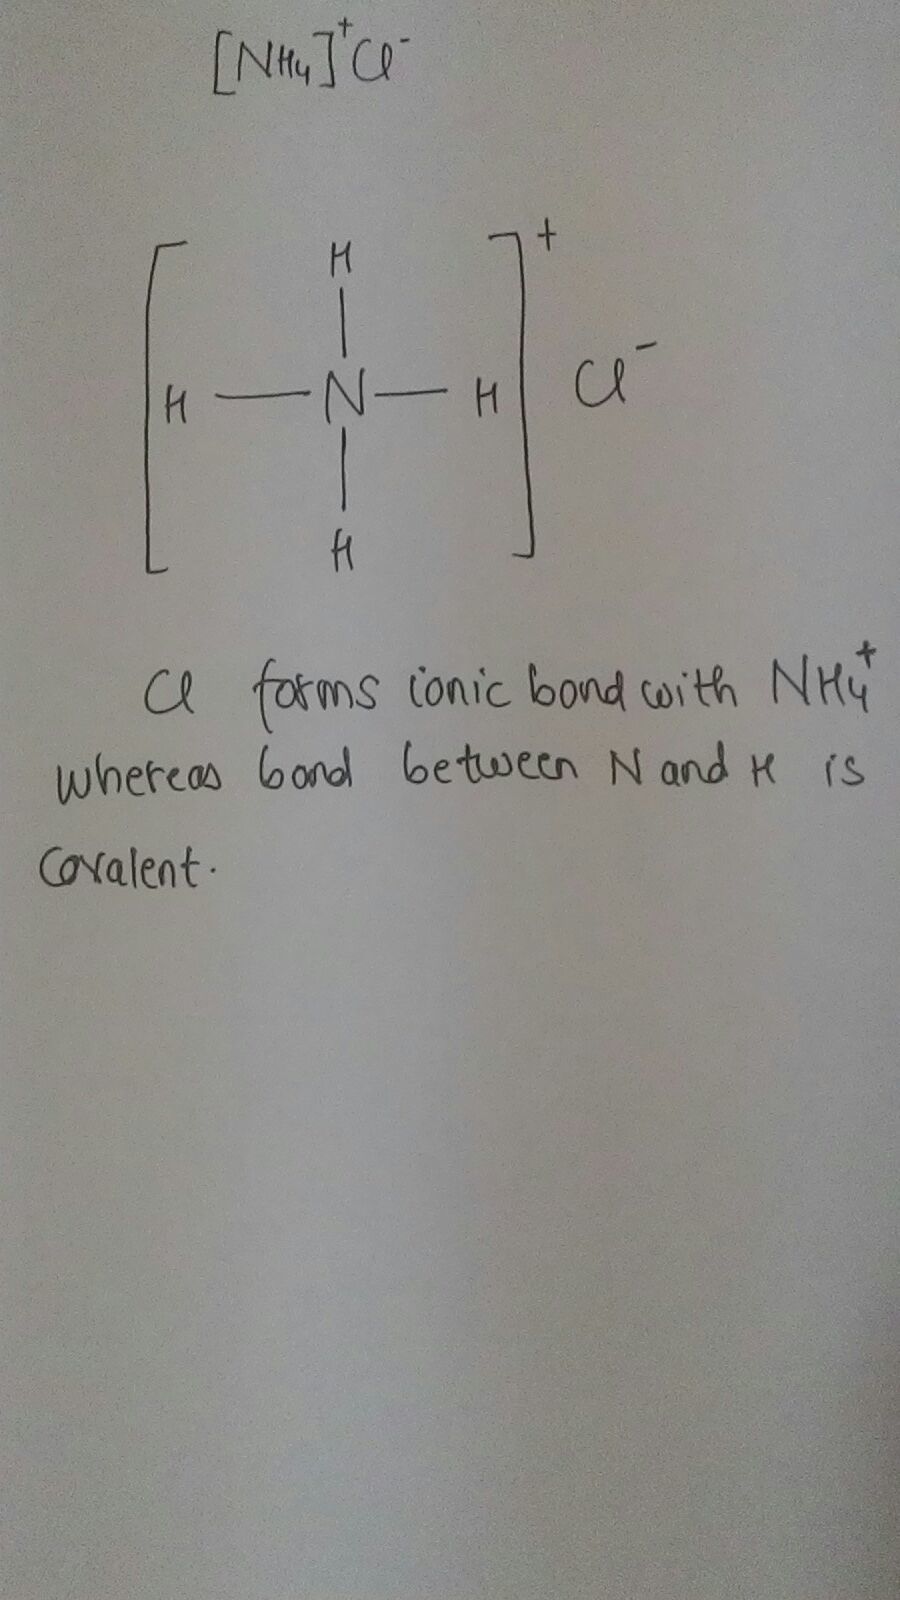 [NH4]+Cl-
H
+
H — N — H Cl-
H
Cl forms ionic bond with NH4+
whereas bond between N and H is
covalent.